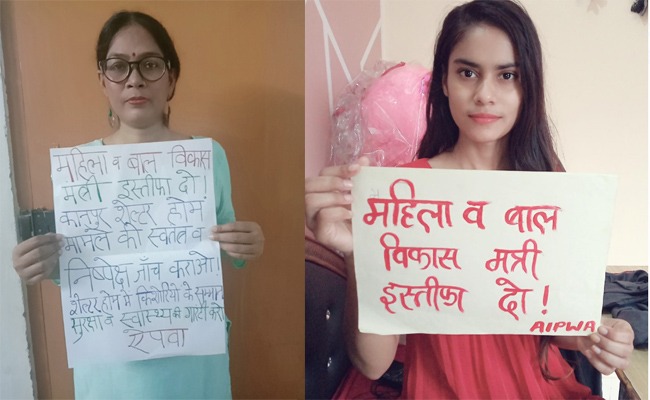 महिला व बाल विकास
मंत्री इस्तीफा दो!
कानपुर शेल्टर होम
मामले की स्वतंत्र व
निष्पेक्ष जाँच कराओ!
शेल्टर होम में किशोरियों के सम्मान
सुरक्षा व स्वास्थ्य की गारंटी करो
ऐपवा
महिला व बाल
विकास मंत्री
इस्तीफा दो!
AIPWA